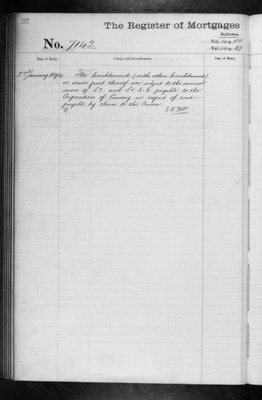 The Register of Mortgages
No. 7042
Reference.
Date of Entry.
Charges and Incumbrances.
Date of Entry.
January 1914. The hereditaments (with other hereditaments)
or some part thereof are subject to the annual
sums of £2. and £0. 6. 6 payable to the
Corporation of in respect of rent
payable by them to the Crown.